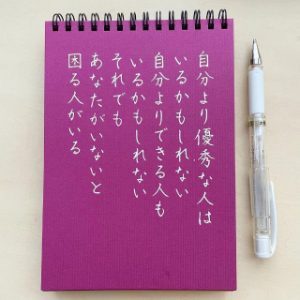 自分より優秀な人は
いるかもしれない
自分よりできる人も
いるかもしれない
それでも
あなたがいないと
困る人がいる